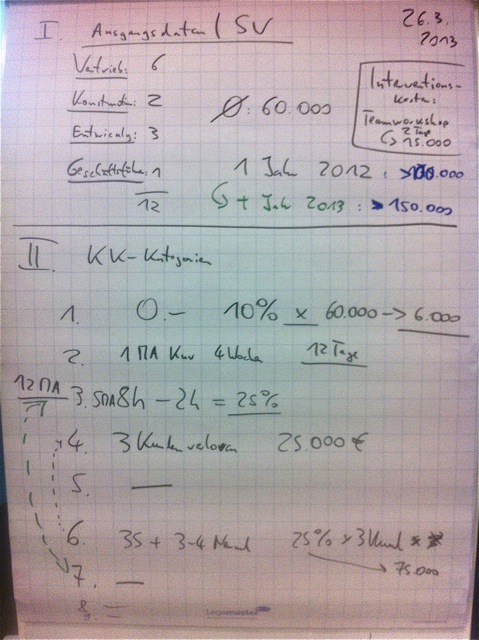 26.3.
2013
I. Ausgangsdaten / SV
Vertrieb: 6
Konstrukt.: 2
Entwicklg: 3
Geschäftsführ. 1
12
Ø: 60.000
Interventions-
kosten:
Teamworkshop
2 Tage
↳ 15.000
1 Jahr 2012 : >100.000
↳ + Jahr 2013 : > 150.000
II KK-Kategorien
1. 0.- 10% x 60.000 -> 6.000
2. 1 MA Kur 4 Woche 12 Tage
12 MA
3. 5MA 8h - 2h = 25%
4. 3 Kunden verloren 25.000 €
5. —
6. 35 + 3-4 25% x 3
→ 75.000
7. —
8. =
Legamaster